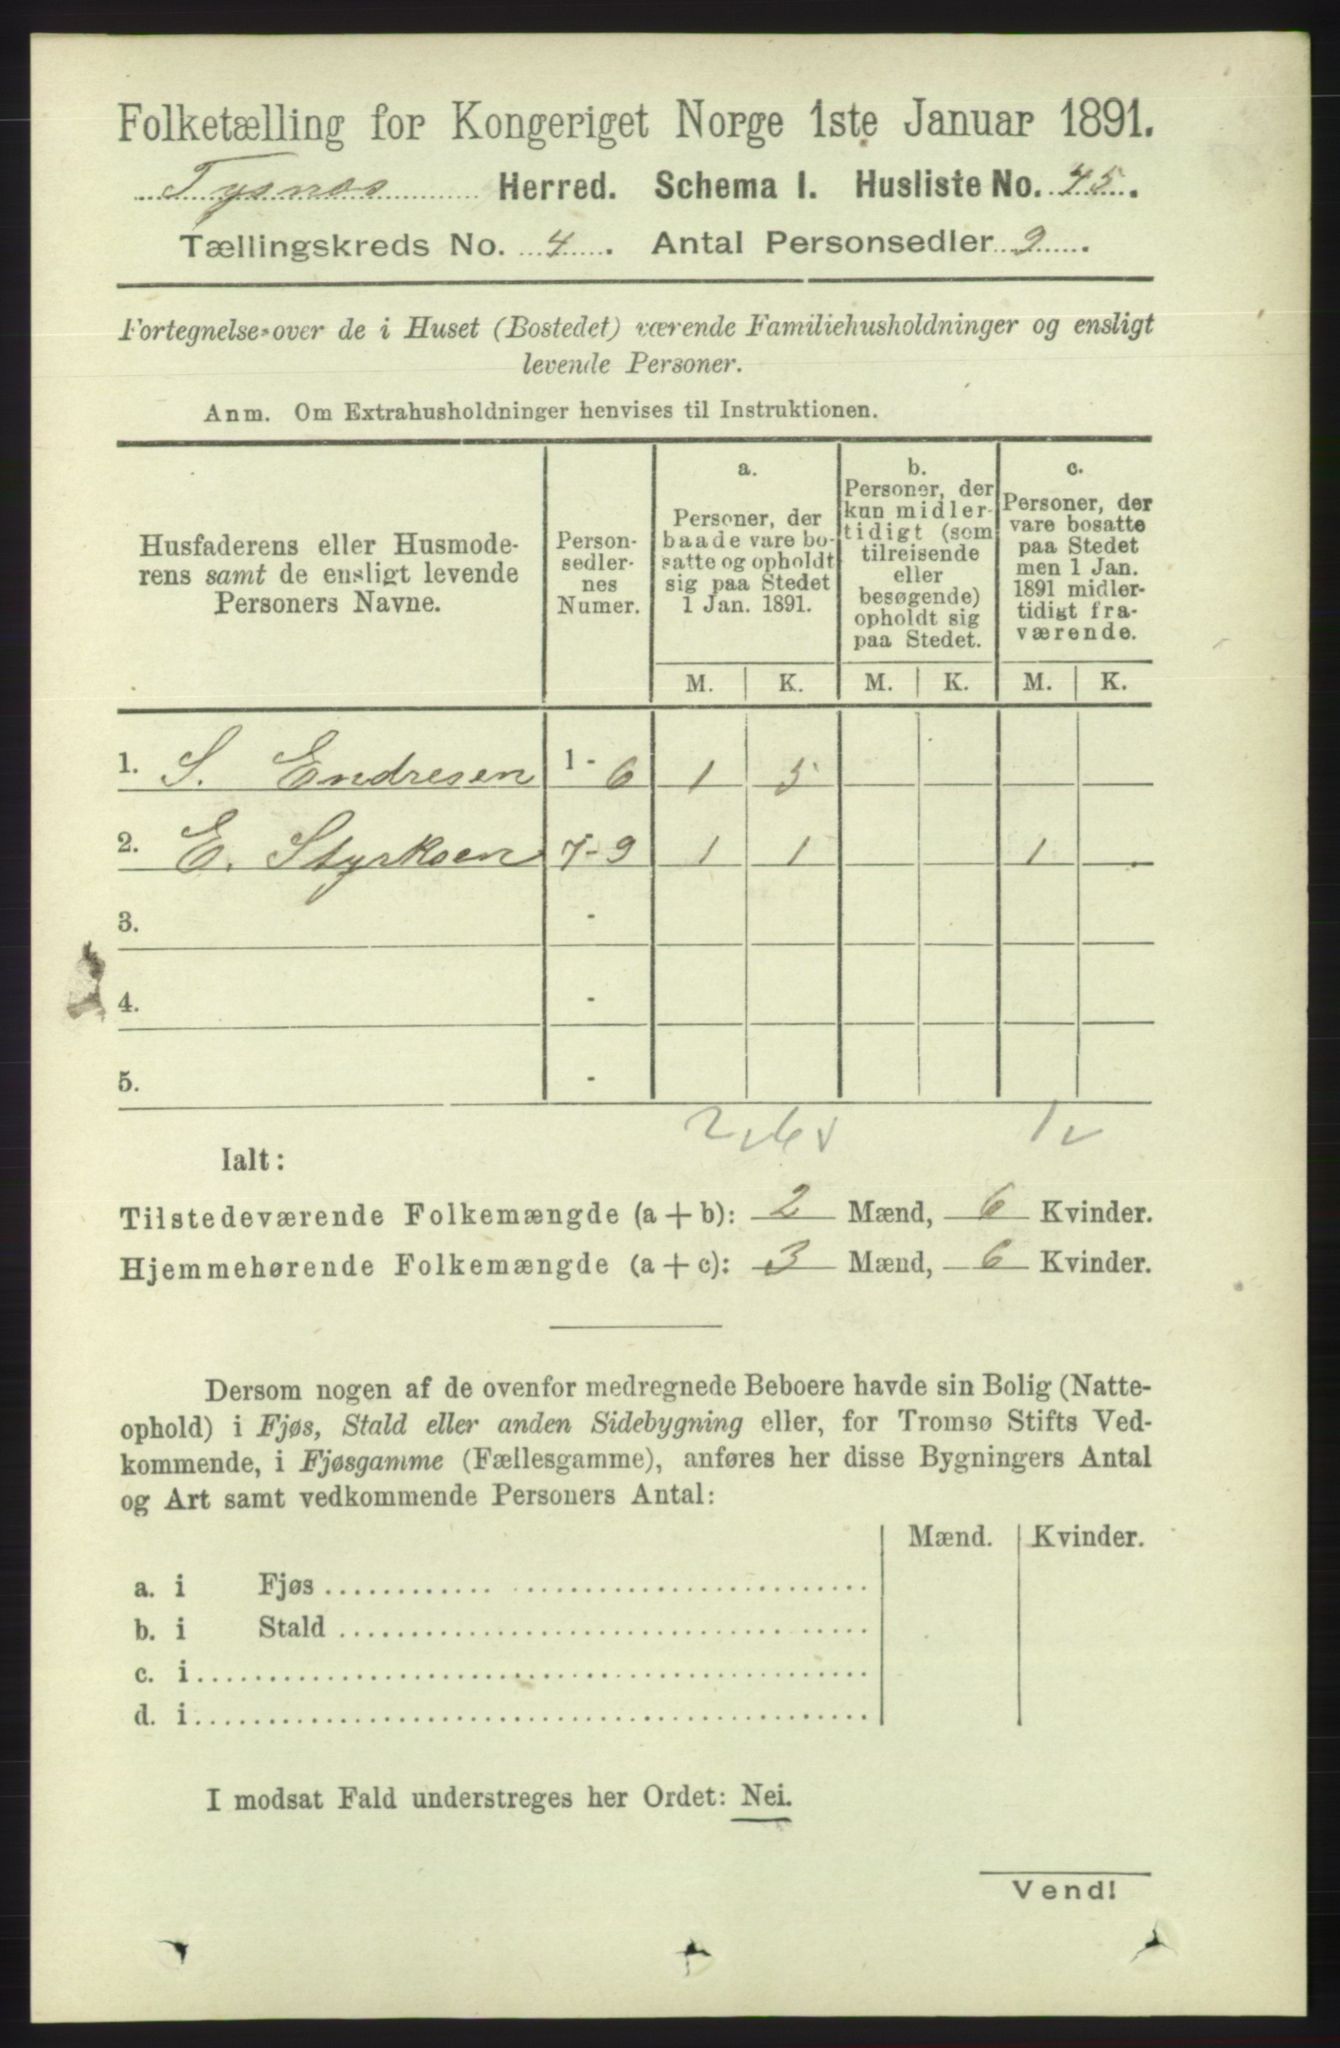 Folketælling for Kongeriget Norge 1ste Januar 1891.
Tysnæs Herred. Schema I. Husliste No. 45.
Tællingskreds No. 4. Antal Personsedler 9.
Fortegnelse over de i Huset (Bostedet) værende Familiehusholdninger og ensligt
levende Personer.
Anm. Om Extrahusholdninger henvises til Instruktionen.
Husfaderens eller Husmode-
rens samt de ensligt levende
Personers Navne.
Person-
sedler-
nes
Numer.
a.
Personer, der
baade vare bo-
satte og opholdt
sig paa Stedet
1 Jan. 1891.
b.
Personer, der
kun midler-
tidigt (som
tilreisende
eller
besøgende)
opholdt sig
paa Stedet.
c.
Personer, der
vare bosatte
paa Stedet
men 1 Jan.
1891 midler-
tidigt fra-
værende.
M. K. M. K. M. K.
1. S. Endresen 1 - 6 1 5
2. E. Styrksen 7 - 9 1 1 1
3. -
4. -
5. -
2 6 1
Ialt:
Tilstedeværende Folkemængde (a + b): 2 Mænd, 6 Kvinder.
Hjemmehørende Folkemængde (a + c): 3 Mænd, 6 Kvinder.
Dersom nogen af de ovenfor medregnede Beboere havde sin Bolig (Natte-
ophold) i Fjøs, Stald eller anden Sidebygning eller, for Tromsø Stifts Ved-
kommende, i Fjøsgamme (Fællesgamme), anføres her disse Bygningers Antal
og Art samt vedkommende Personers Antal:
Mænd. Kvinder.
a. i Fjøs
b. i Stald
c. i
d. i
I modsat Fald understreges her Ordet: Nei.
Vend!